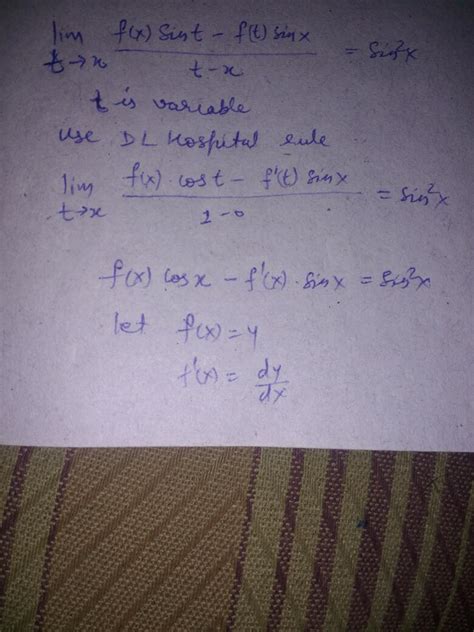 lim t→x (f(x) Sint - f(t) sinx)/(t-x) = Sin²x
t is variable
use DL Hospital rule
lim t→x (f(x) · cost - f'(t) sinx)/(1-0) = sin²x
f(x) cosx - f'(x) · sinx = sin²x
let f(x) = y
f'(x) = dy/dx